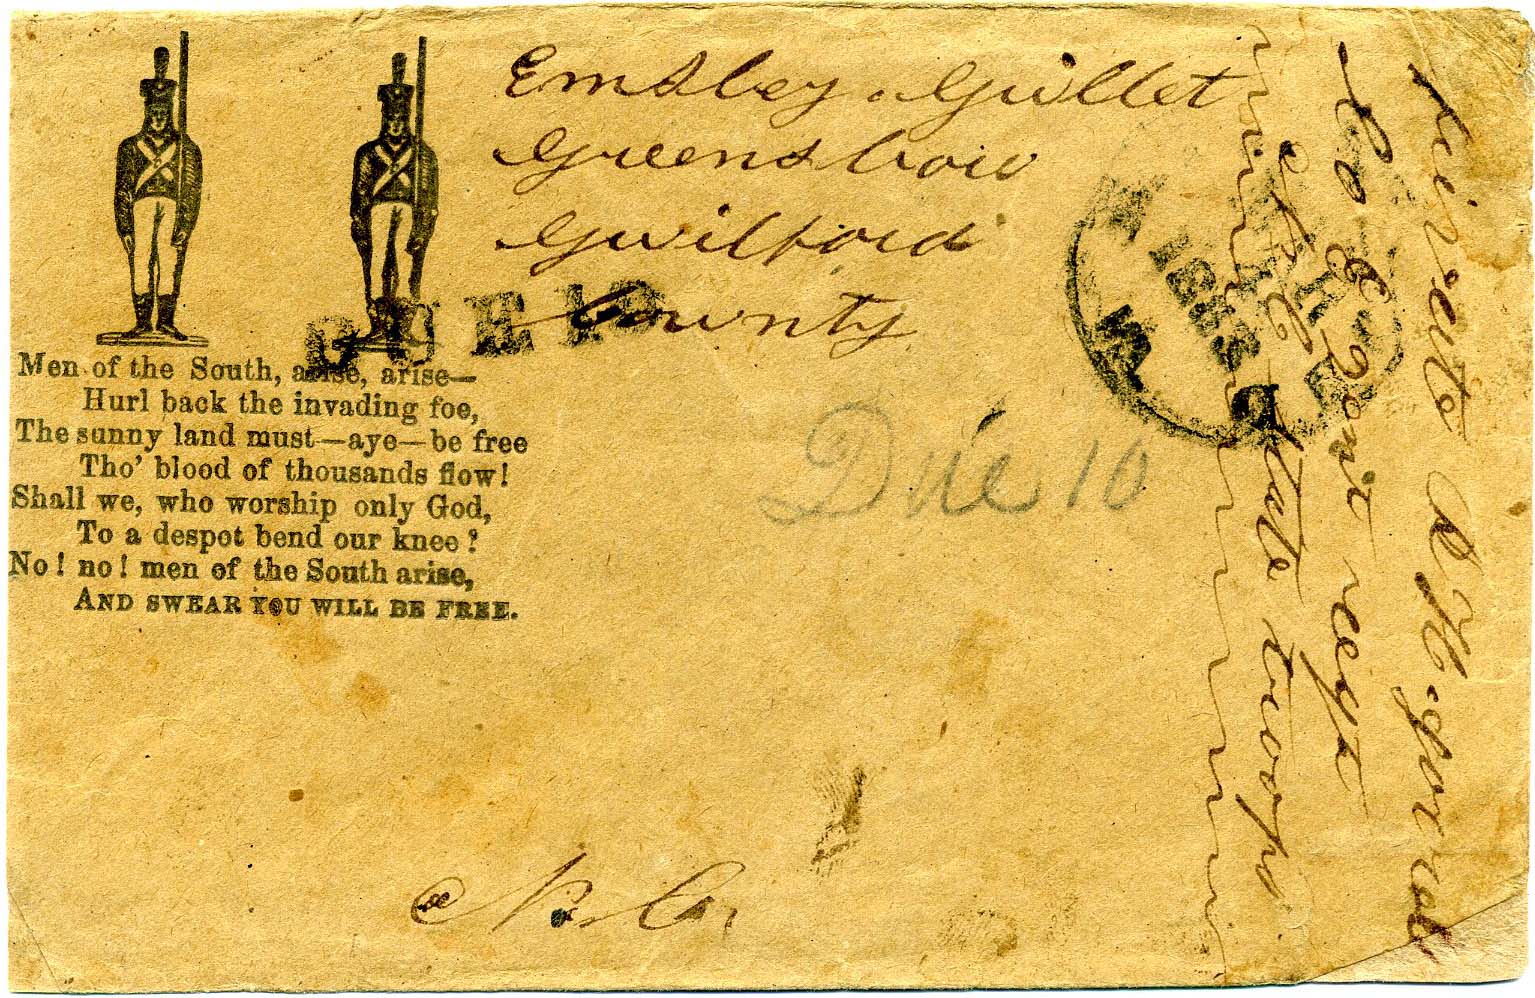 Emsley Gullet
Greensboro
Guilford
County
DUE 10
Men of the South, arise, arise—
Hurl back the invading foe,
The sunny land must—aye—be free
Tho' blood of thousands flow!
Shall we, who worship only God,
To a despot bend our knee?
No! no! men of the South arise,
AND SWEAR YOU WILL BE FREE.
Due 10
N. Co.
Co E 2on regt
N C State troops